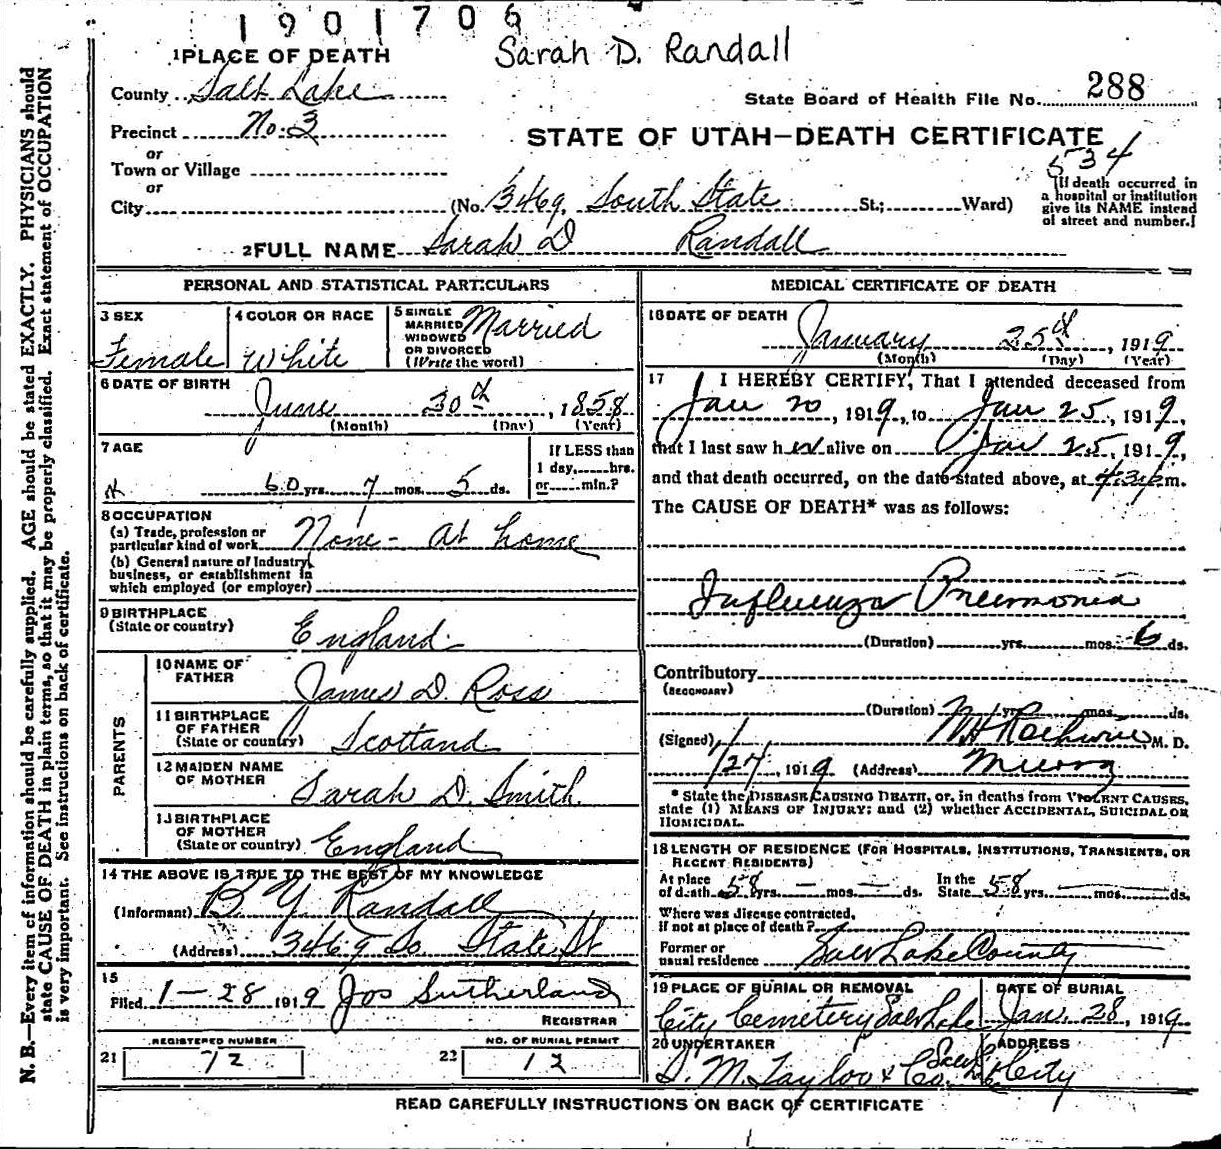 1901706
Sarah D. Randall
1 PLACE OF DEATH
County Salt Lake
State Board of Health File No. 288
Precinct No. 3
STATE OF UTAH—DEATH CERTIFICATE
or
534
Town or Village
or
City (No. 3469 South State St.; Ward)
[If death occurred in
a hospital or institution
give its NAME instead
of street and number.]
2 FULL NAME Sarah D Randall
PERSONAL AND STATISTICAL PARTICULARS
3 SEX
Female
4 COLOR OR RACE
White
5 SINGLE
MARRIED
WIDOWED
OR DIVORCED
(Write the word)
Married
6 DATE OF BIRTH
June 30th, 1858
(Month) (Day) (Year)
7 AGE
60 yrs. 7 mos. 5 ds.
If LESS than
1 day, hrs.
or min.?
8 OCCUPATION
(a) Trade, profession or
particular kind of work None - At home
(b) General nature of Industry,
business, or establishment in
which employed (or employer)
9 BIRTHPLACE
(State or country)
England
PARENTS
10 NAME OF
FATHER
James D. Ross
11 BIRTHPLACE
OF FATHER
(State or country)
Scotland
12 MAIDEN NAME
OF MOTHER
Sarah D. Smith
13 BIRTHPLACE
OF MOTHER
(State or country)
England
14 THE ABOVE IS TRUE TO THE BEST OF MY KNOWLEDGE
(Informant) B. Y. Randall
(Address) 3469 So. State St
15
Filed 1-28 1919 Jos Sutherland
REGISTRAR
21 REGISTERED NUMBER
72
22 NO. OF BURIAL PERMIT
12
MEDICAL CERTIFICATE OF DEATH
16 DATE OF DEATH
January 25th, 1919
(Month) (Day) (Year)
17 I HEREBY CERTIFY, That I attended deceased from
Jan 20, 1919, to Jan 25, 1919,
that I last saw her alive on Jan 25, 1919,
and that death occurred, on the date stated above, at m.
The CAUSE OF DEATH* was as follows:
Influenza Pneumonia
(Duration) yrs. mos. 6 ds.
Contributory
(SECONDARY)
(Duration) yrs. mos. ds.
(Signed) M. D.
1/27, 1919 (Address) Murray
* State the DISEASE CAUSING DEATH, or, in deaths from VIOLENT CAUSES,
state (1) MEANS OF INJURY; and (2) whether ACCIDENTAL, SUICIDAL OR
HOMICIDAL.
18 LENGTH OF RESIDENCE (FOR HOSPITALS, INSTITUTIONS, TRANSIENTS, OR
RECENT RESIDENTS)
At place
of death 58 yrs. — mos. — ds.
In the
State 58 yrs. mos. ds.
Where was disease contracted,
if not at place of death?
Former or
usual residence Salt Lake County
19 PLACE OF BURIAL OR REMOVAL
City Cemetery Salt Lake
DATE OF BURIAL
Jan. 28, 1919
20 UNDERTAKER
S. M. Taylor & Co.
ADDRESS
Salt L City
READ CAREFULLY INSTRUCTIONS ON BACK OF CERTIFICATE
N. B.—Every item of information should be carefully supplied. AGE should be stated EXACTLY. PHYSICIANS should
state CAUSE OF DEATH in plain terms, so that it may be properly classified. Exact statement of OCCUPATION
is very important. See instructions on back of certificate.